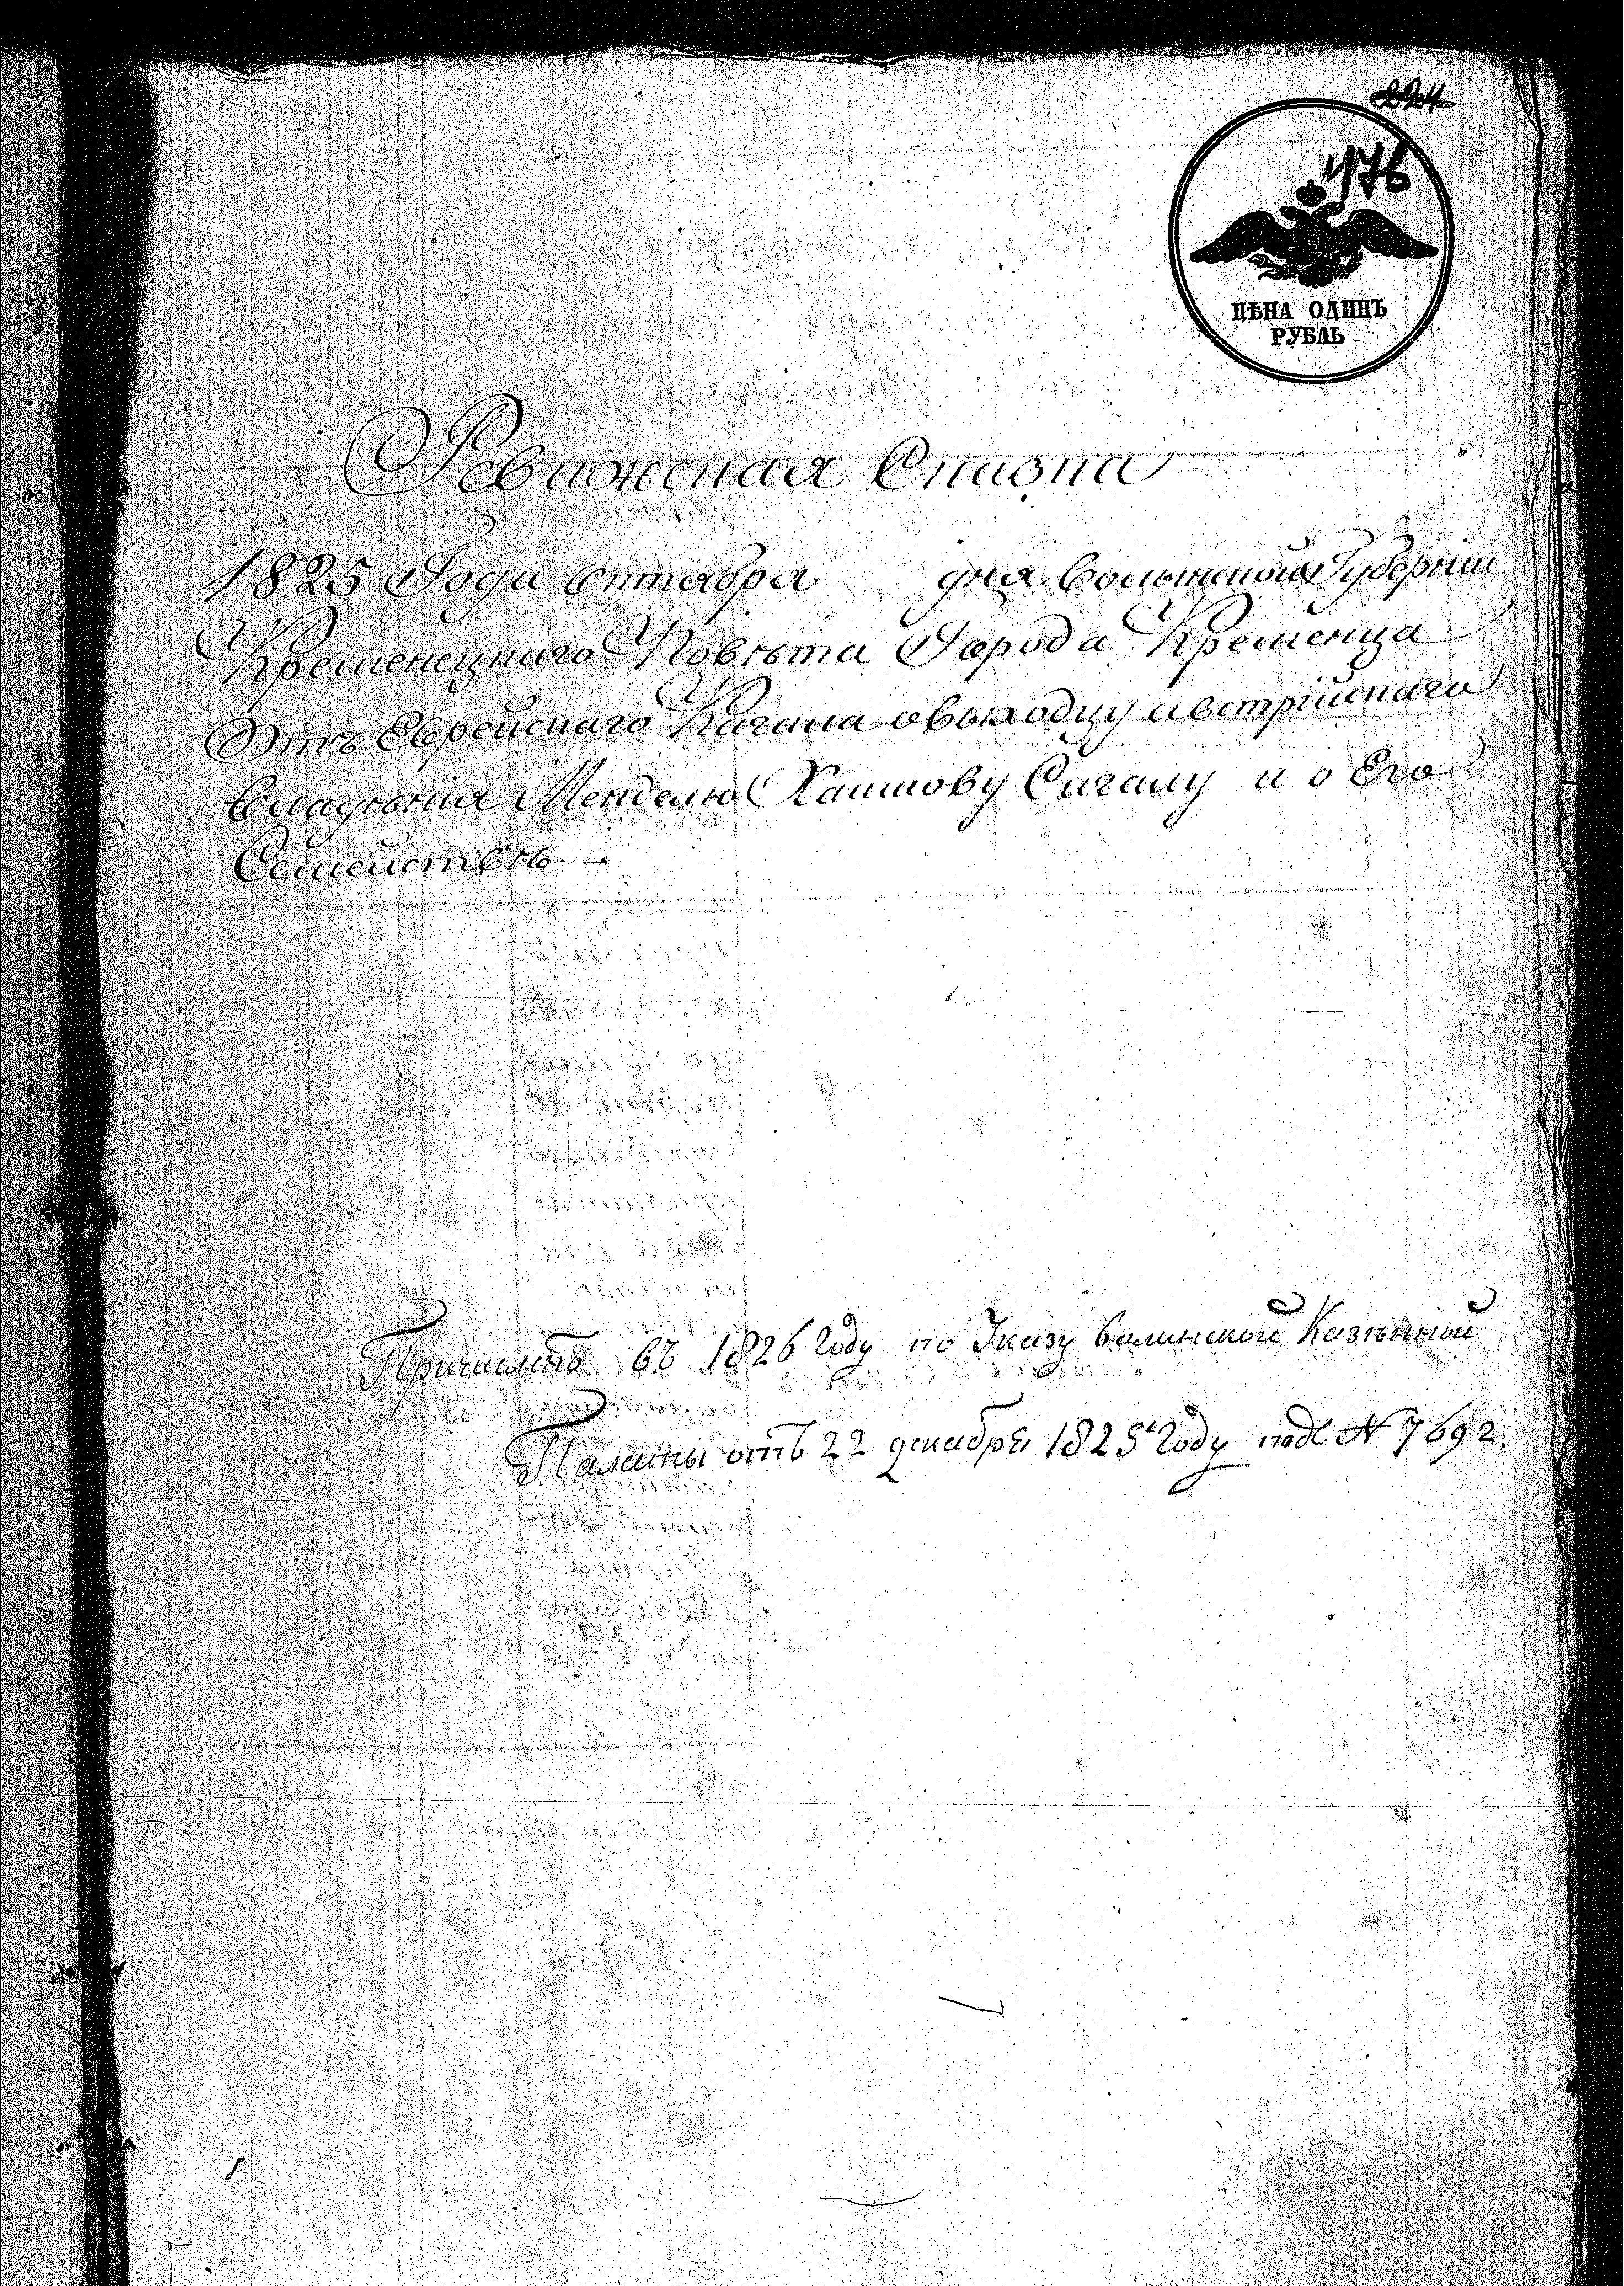 224
476
ЦѢНА ОДИНЪ
РУБЛЬ
Ревижская Сказка
1825 Года октября дня волынской Губерніи
Кременецкаго Повѣта Города Кременца
Отъ Еврейскаго Кагала овыходцу австрійскаго
владѣнія Менделю Хаимову Сигалу и о Его
Семействѣ
Причислить въ 1826 Году по Указу волинской Казѣнной
Палаты отъ 22 декабря 1825 Году подъ № 7692.